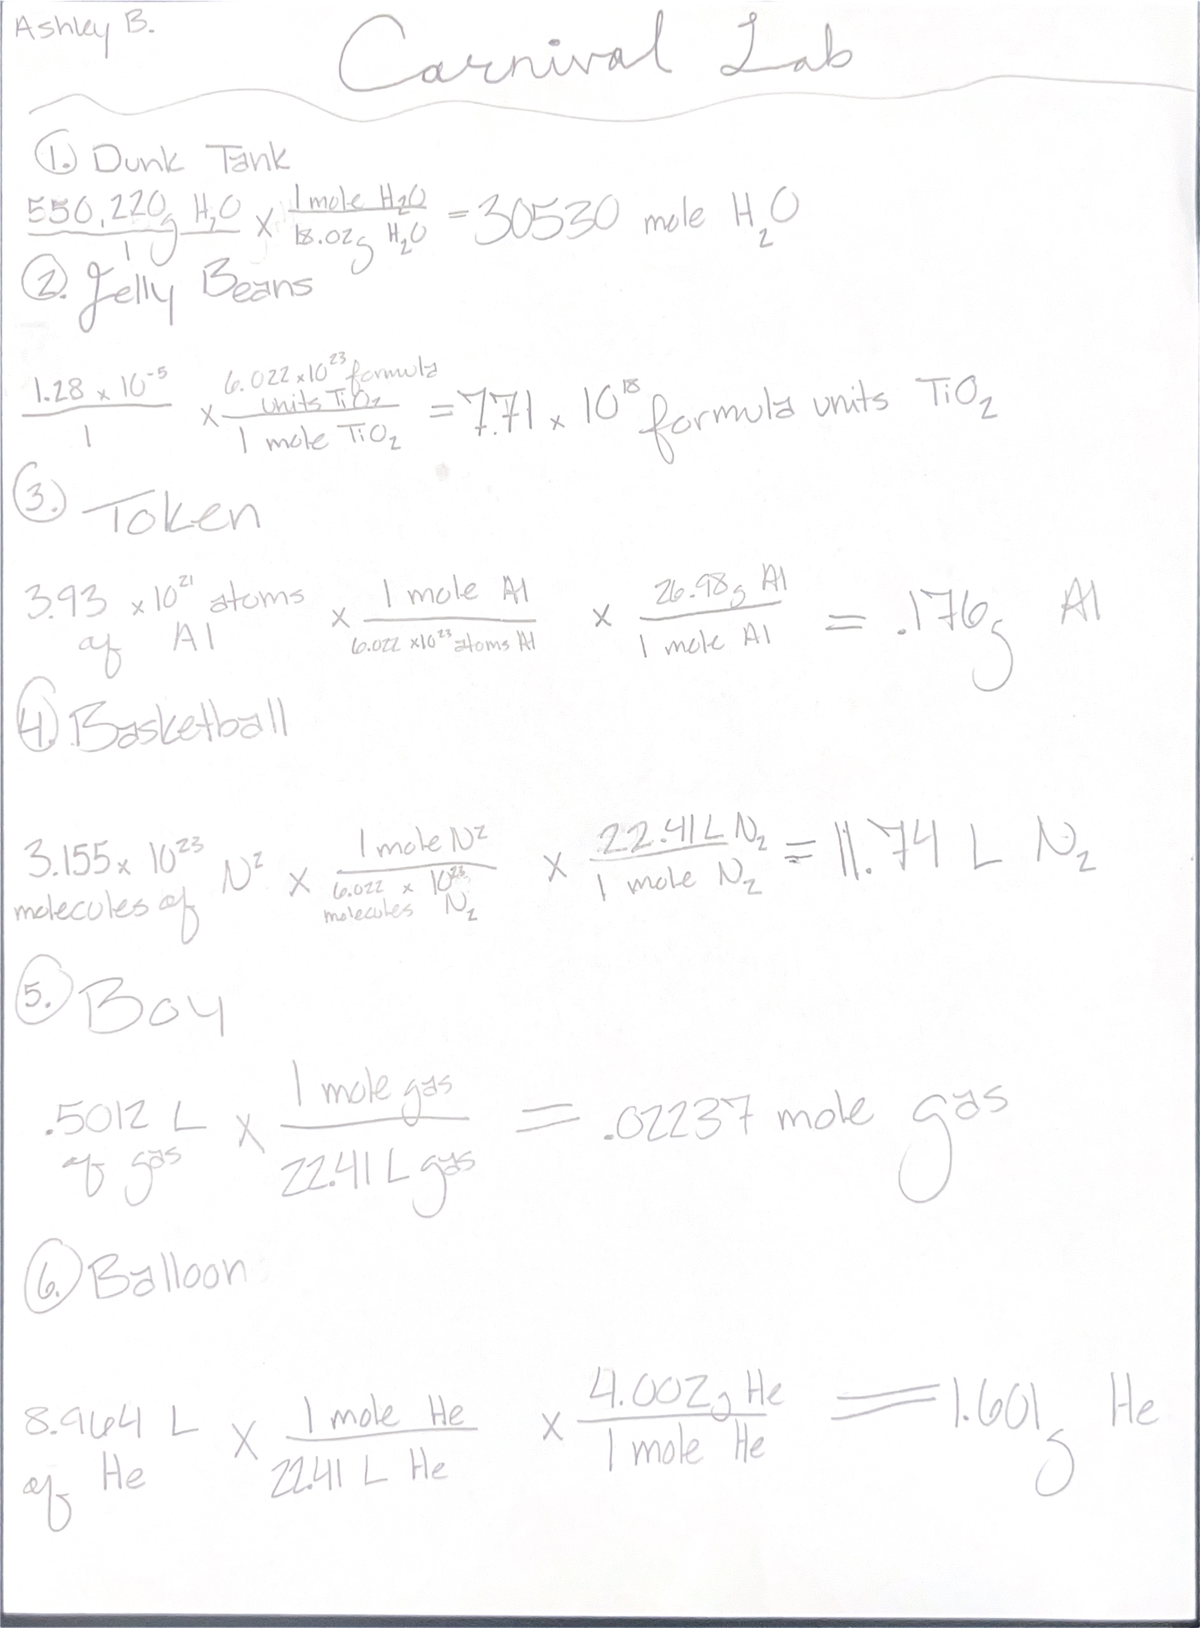 Ashley B.
Carnival Lab
1. Dunk Tank
550,220g H₂O / 1 × 1 mole H₂O / 18.02g H₂O = 30530 mole H₂O
2. Jelly Beans
1.28 × 10⁻⁵ / 1 × 6.022 × 10²³ formula units TiO₂ / 1 mole TiO₂ = 7.71 × 10¹⁸ formula units TiO₂
3. Token
3.93 × 10²¹ atoms of Al × 1 mole Al / 6.022 × 10²³ atoms Al × 26.98g Al / 1 mole Al = .176g Al
4. Basketball
3.155 × 10²³ molecules of N² × 1 mole N² / 6.022 × 10²³ molecules N₂ × 22.41 L N₂ / 1 mole N₂ = 11.74 L N₂
5. Boy
.5012 L of gas × 1 mole gas / 22.41 L gas = .02237 mole gas
6. Balloon
8.964 L of He × 1 mole He / 22.41 L He × 4.002g He / 1 mole He = 1.601g He